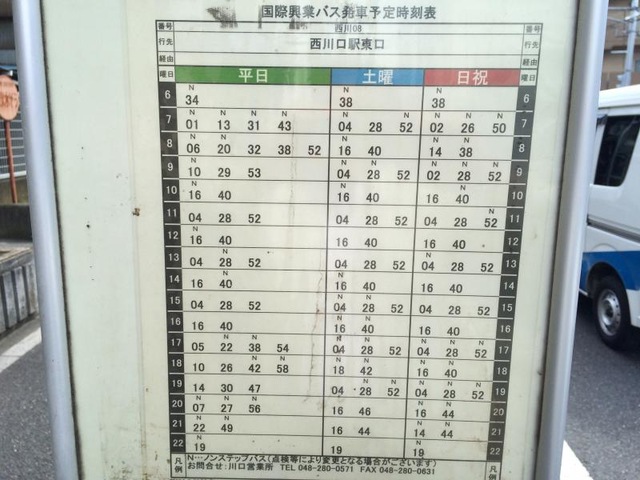 国際興業バス発車予定時刻表
番号 西川08 番号
行先 西川口駅東口 行先
経由 経由
曜日 平日 土曜 日祝 曜日
6 34 38 38 6
7 01 13 31 43 04 28 52 02 26 50 7
8 06 20 32 38 52 16 40 14 38 8
9 10 29 53 04 28 52 02 28 52 9
10 16 40 16 40 16 40 10
11 04 28 52 04 28 52 04 28 52 11
12 16 40 16 40 16 40 12
13 04 28 52 04 28 52 04 28 52 13
14 16 40 16 40 16 40 14
15 04 28 52 04 28 52 04 28 52 15
16 16 40 16 40 16 40 16
17 05 22 38 54 04 28 52 04 28 52 17
18 10 26 42 58 18 42 16 40 18
19 14 30 47 04 28 52 04 28 52 19
20 07 27 56 16 46 16 44 20
21 22 49 16 44 14 44 21
22 19 19 19 22
凡例 N…ノンステップバス(点検等により変更となる場合がございます) 凡例
お問合せ:川口営業所 TEL 048-280-0571 FAX 048-280-0631